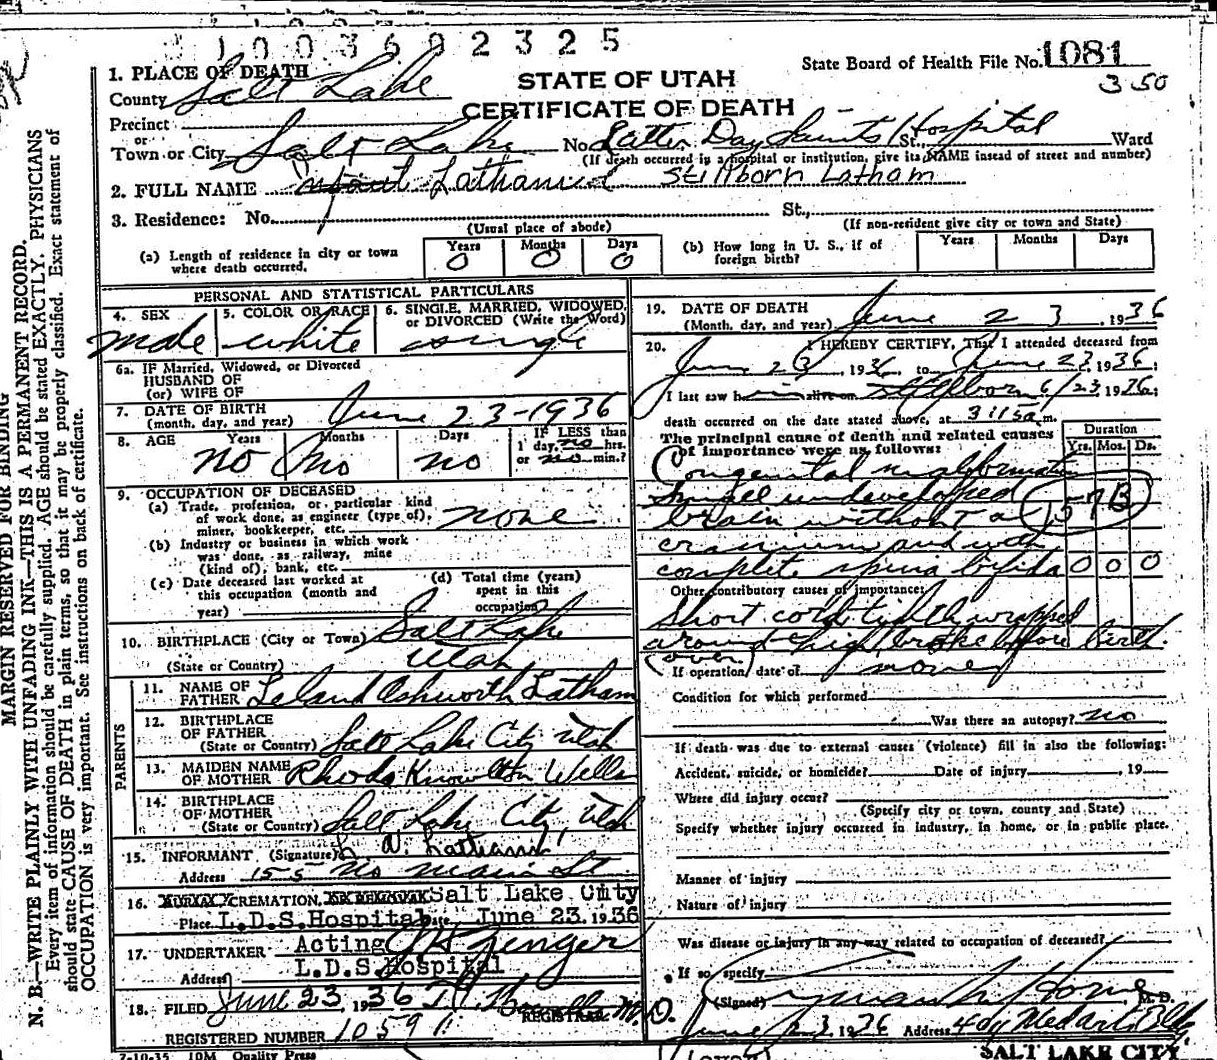 1003692325
State Board of Health File No. 1081
350
1. PLACE OF DEATH
STATE OF UTAH
CERTIFICATE OF DEATH
County Salt Lake
Precinct
or
Town or City Salt Lake No. Latter Day Saints Hospital St., Ward
(If death occurred in a hospital or institution, give its NAME instead of street and number)
2. FULL NAME Infant Latham Stillborn Latham
3. Residence: No. St.,
(Usual place of abode) (If non-resident give city or town and State)
(a) Length of residence in city or town where death occurred. Years 0 Months 0 Days 0
(b) How long in U. S., if of foreign birth? Years Months Days
PERSONAL AND STATISTICAL PARTICULARS
4. SEX 5. COLOR OR RACE 6. SINGLE, MARRIED, WIDOWED, or DIVORCED (Write the Word)
male white single
6a. IF Married, Widowed, or Divorced
HUSBAND OF
(or) WIFE OF
7. DATE OF BIRTH
(month, day, and year) June 23-1936
8. AGE Years Months Days IF LESS than
no no no 1 day, no hrs.
or no min.?
9. OCCUPATION OF DECEASED
(a) Trade, profession, or particular kind
of work done, as engineer (type of), none
miner, bookkeeper, etc.
(b) Industry or business in which work
was done, as railway, mine
(kind of), bank, etc.
(c) Date deceased last worked at
this occupation (month and
year)
(d) Total time (years)
spent in this
occupation
10. BIRTHPLACE (City or Town) Salt Lake
(State or Country) Utah
PARENTS
11. NAME OF FATHER Leland Ashworth Latham
12. BIRTHPLACE OF FATHER
(State or Country) Salt Lake City Utah
13. MAIDEN NAME OF MOTHER Rhoda Knowlton Wells
14. BIRTHPLACE OF MOTHER
(State or Country) Salt Lake City Utah
15. INFORMANT (Signature) L A. Latham
Address 155 No Main St
16. BURIAL, CREMATION, OR REMOVAL Salt Lake City
Place L.D.S.Hospital Date June 23.1936
17. UNDERTAKER Acting
Address L.D.S.Hospital
18. FILED June 23, 1936 M.D.
REGISTRAR
REGISTERED NUMBER 1059
7-10-35 10M Quality Press
19. DATE OF DEATH
(Month, day, and year) June 23, 1936
20. I HEREBY CERTIFY, That I attended deceased from
June 23, 1936, to June 23, 1936;
I last saw h im alive on Stillborn 6/23, 1936;
death occurred on the date stated above, at 3:15a m.
The principal cause of death and related causes
of importance were as follows:
Duration
Yrs. Mos. Ds.
Congenital malformation
undeveloped 157B
brain without a
cranium and with
complete spina bifida 0 0 0
Other contributory causes of importance:
Short cord tightly wrapped
around thigh, broke before birth.
(over)
If operation, date of none
Condition for which performed
Was there an autopsy? no
If death was due to external causes (violence) fill in also the following:
Accident, suicide, or homicide? Date of injury , 19
Where did injury occur?
(Specify city or town, county and State)
Specify whether injury occurred in industry, in home, or in public place.
Manner of injury
Nature of injury
Was disease or injury in any way related to occupation of deceased?
If so, specify
(Signed) Lyman Horne, M. D.
June 23, 1936 Address Med Arts Bldg
SALT LAKE CITY
(OVER)
MARGIN RESERVED FOR BINDING
N. B.—WRITE PLAINLY WITH UNFADING INK—THIS IS A PERMANENT RECORD.
Every item of information should be carefully supplied. AGE should be stated EXACTLY. PHYSICIANS
should state CAUSE OF DEATH in plain terms, so that it may be properly classified. Exact statement of
OCCUPATION is very important. See instructions on back of certificate.